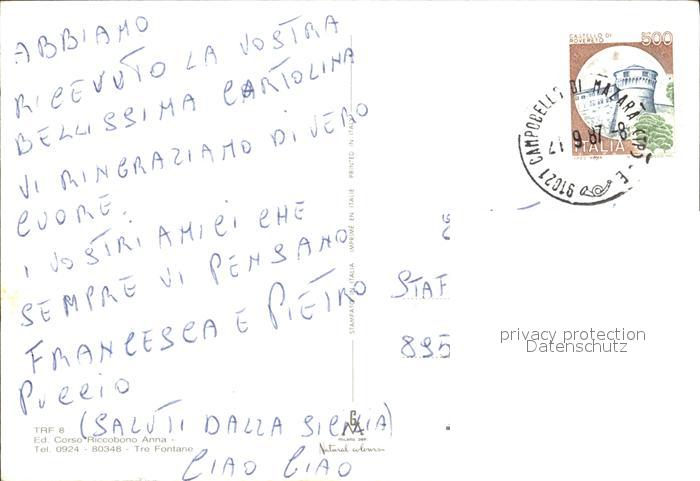 ABBIAMO
RICEVUTO LA VOSTRA
BELLISSIMA CARTOLINA
VI RINGRAZIAMO DI VERO
CUORE.
I VOSTRI AMICI CHE
SEMPRE VI PENSANO
FRANCESCA E PIETRO
PUCCIO
(SALUTI DALLA SICILIA)
CIAO CIAO
TRF 8
Ed. Corso Riccobono Anna -
Tel. 0924 - 80348 - Tre Fontane
STAMPATO IN ITALIA IMPRIMÉ EN ITALIE PRINTED IN ITALY
Natural colour
CASTELLO DI
ROVERETO
500
ITALIA
91021 CAMPOBELLO DI MAZARA (TP)
17 9.87-8
STAF
895
privacy protection
Datenschutz